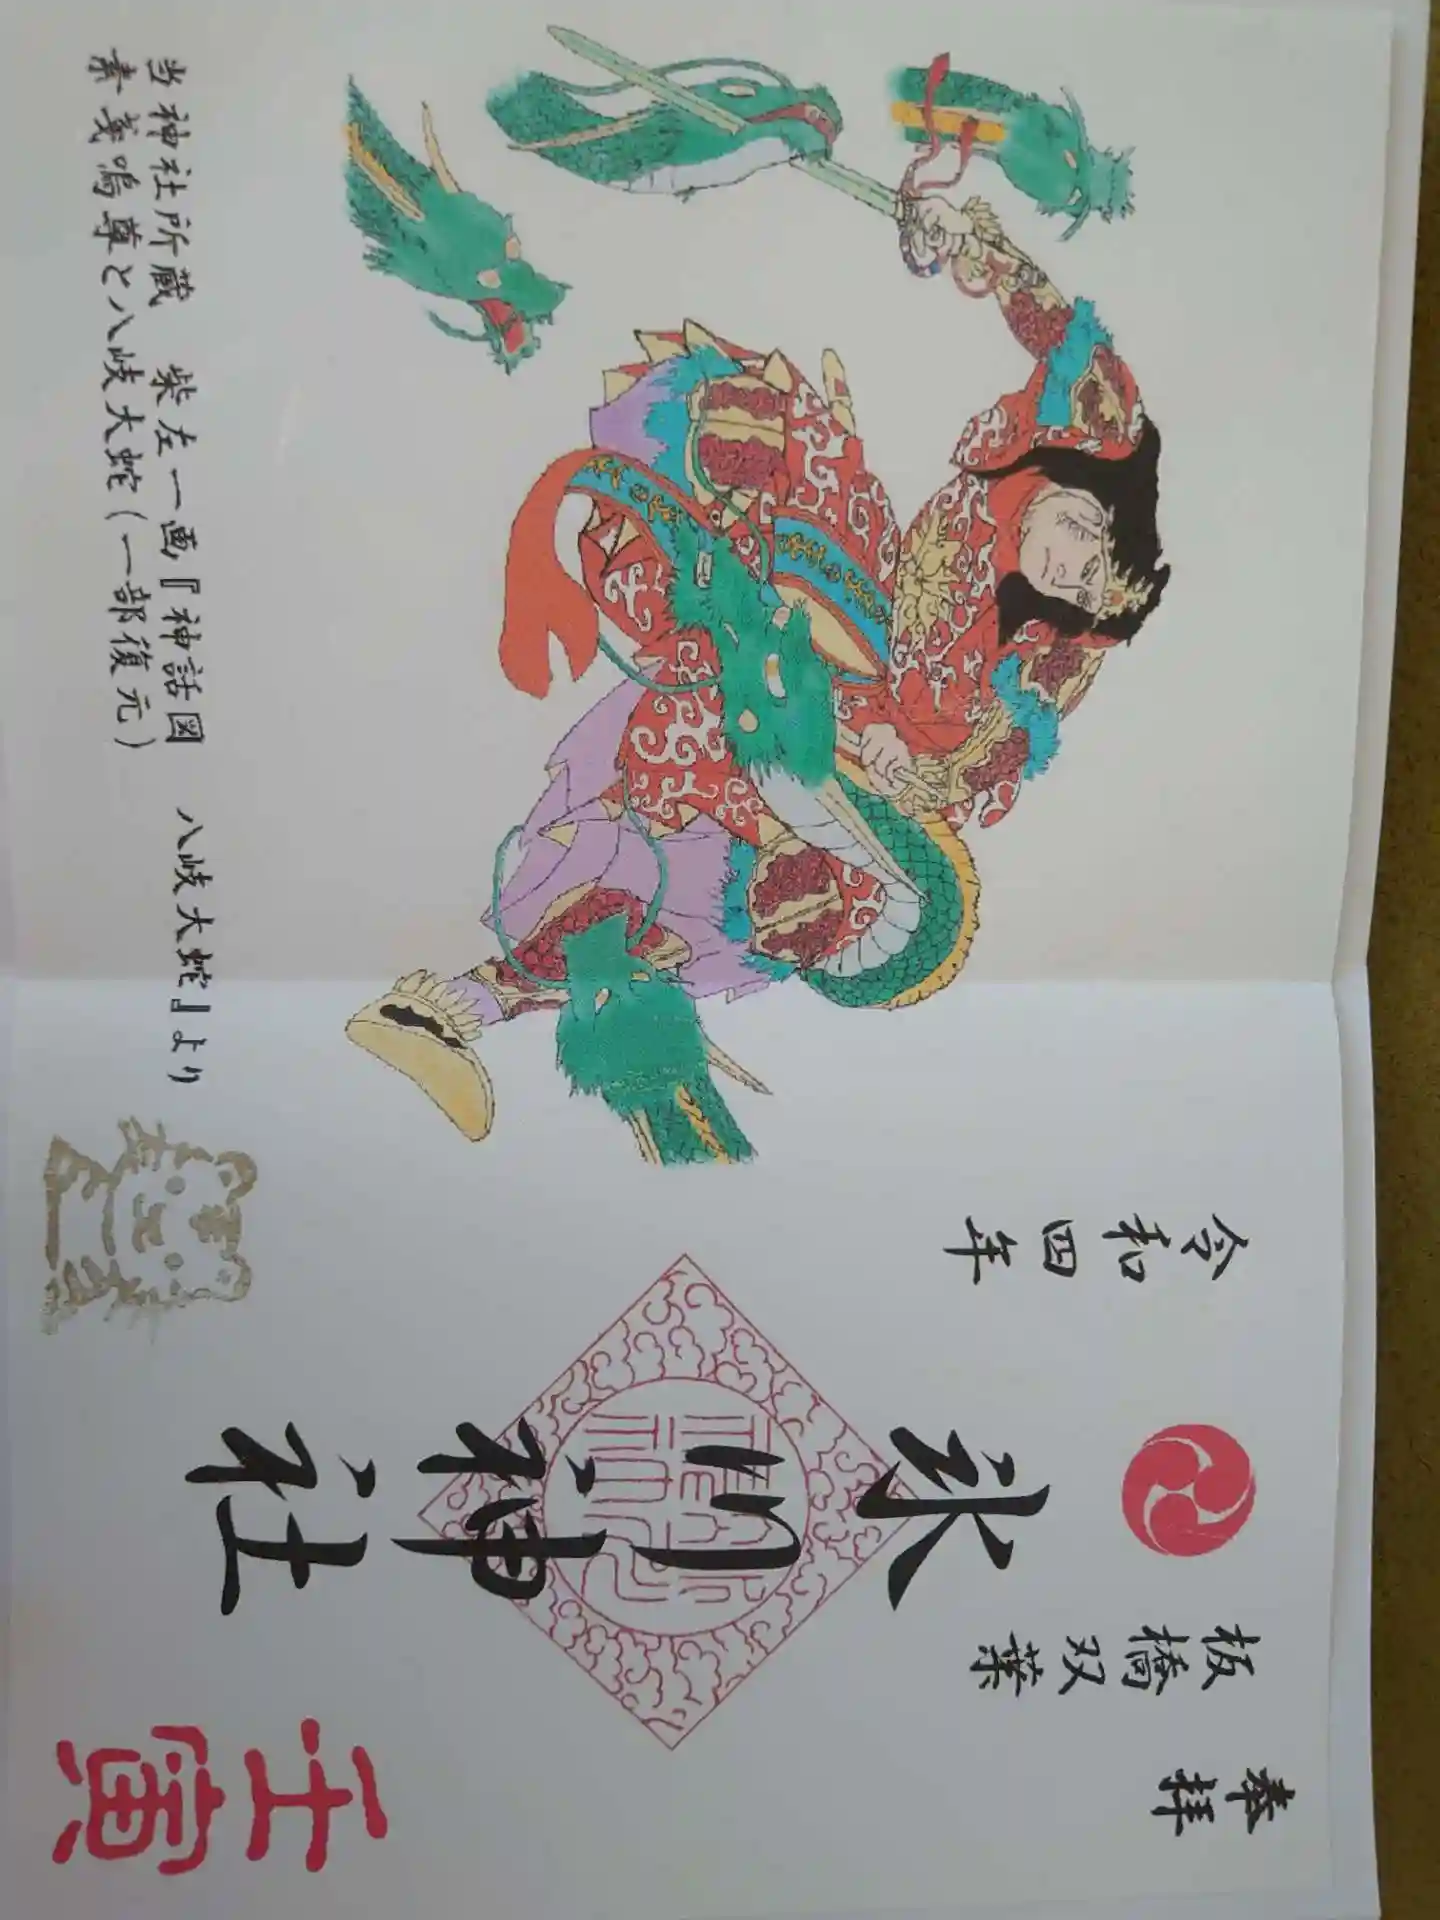 奉拝
壬寅
板橋双葉
氷川神社
令和四年
当神社所蔵 柴左一画『神話図 八岐大蛇』より
素戔嗚尊と八岐大蛇(一部復元)